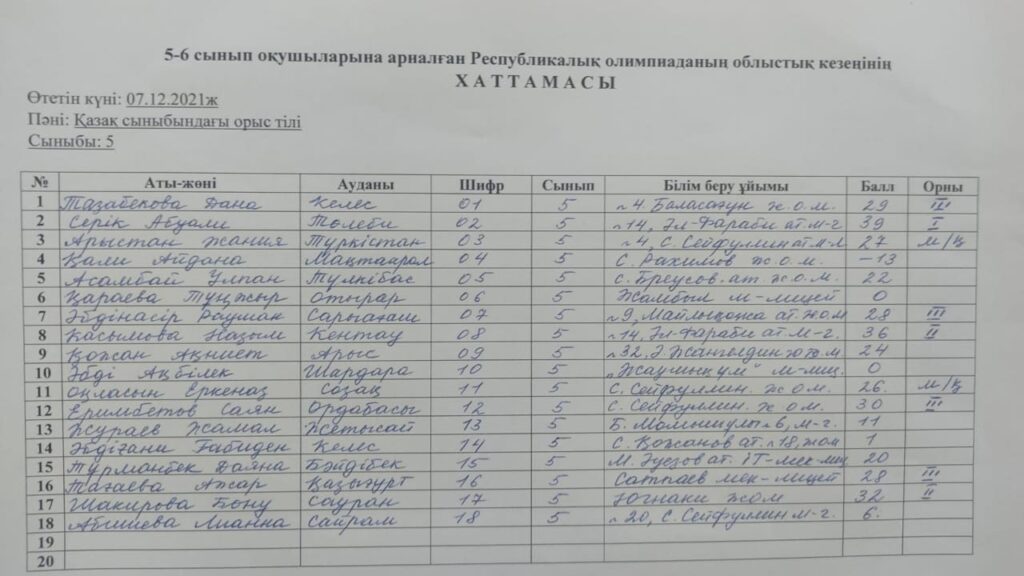 5-6 сынып оқушыларына арналған Республикалық олимпиаданың облыстық кезеңінің
ХАТТАМАСЫ
Өтетін күні: 07.12.2021ж
Пәні: Қазақ сыныбындағы орыс тілі
Сыныбы: 5
№ Аты-жөні Ауданы Шифр Сынып Білім беру ұйымы Балл Орны
1 Тазабекова Дана Келес 01 5 №4, Баласағұн ж.о.м. 29 III
2 Серік Абуали Төлеби 02 5 №14, Әл-Фараби ат м-г 39 I
3 Арыстан Жания Түркістан 03 5 №4, С. Сейфуллин ат. м-л 27 м/қ
4 Қали Айдана Мақтаарал 04 5 С. Рахимов ж.о.м. -13
5 Асамбай Ұлпан Түлкібас 05 5 С. Ереусов ат. ж.о.м. 22
6 Қараева Отырар 06 5 Жамбыл м-лицей 0
7 Әбдінасір Раушан Сарыағаш 07 5 №9, Майлықожа ат жом 28 III
8 Касымова Назым Кентау 08 5 №14, Әл-Фараби ат м-г. 36 II
9 Қожан Ақниет Арыс 09 5 №32, Ә. Жангелдин ж.о.м. 24
10 Әбді Ақбілек Шардара 10 5 м-лиц. 0
11 Оңласын Еркеназ Созақ 11 5 С. Сейфуллин. ж.о.м. 26 м/қ
12 Еримбетов Саян Ордабасы 12 5 С. Сейфуллин. ж.о.м. 30 III
13 Жураев Жамал Жетысай 13 5 Б. Момышұлы №6, м-г. 11
14 Әбдіғани Ғабиден Келес 14 5 С. Қожанов ат. №18 жом 1
15 Тұрманбек Дайна Бәйдібек 15 5 М. Әуезов ат. IT-мек-лиц 20
16 Тағаева Ажар Қазығұрт 16 5 Сатпаев мек-лицей 28 III
17 Шакирова Бону Сауран 17 5 Югнаки жом 32 II
18 Абишева Лианна Сайрам 18 5 №20, С. Сейфуллин м-г. 6.
19
20